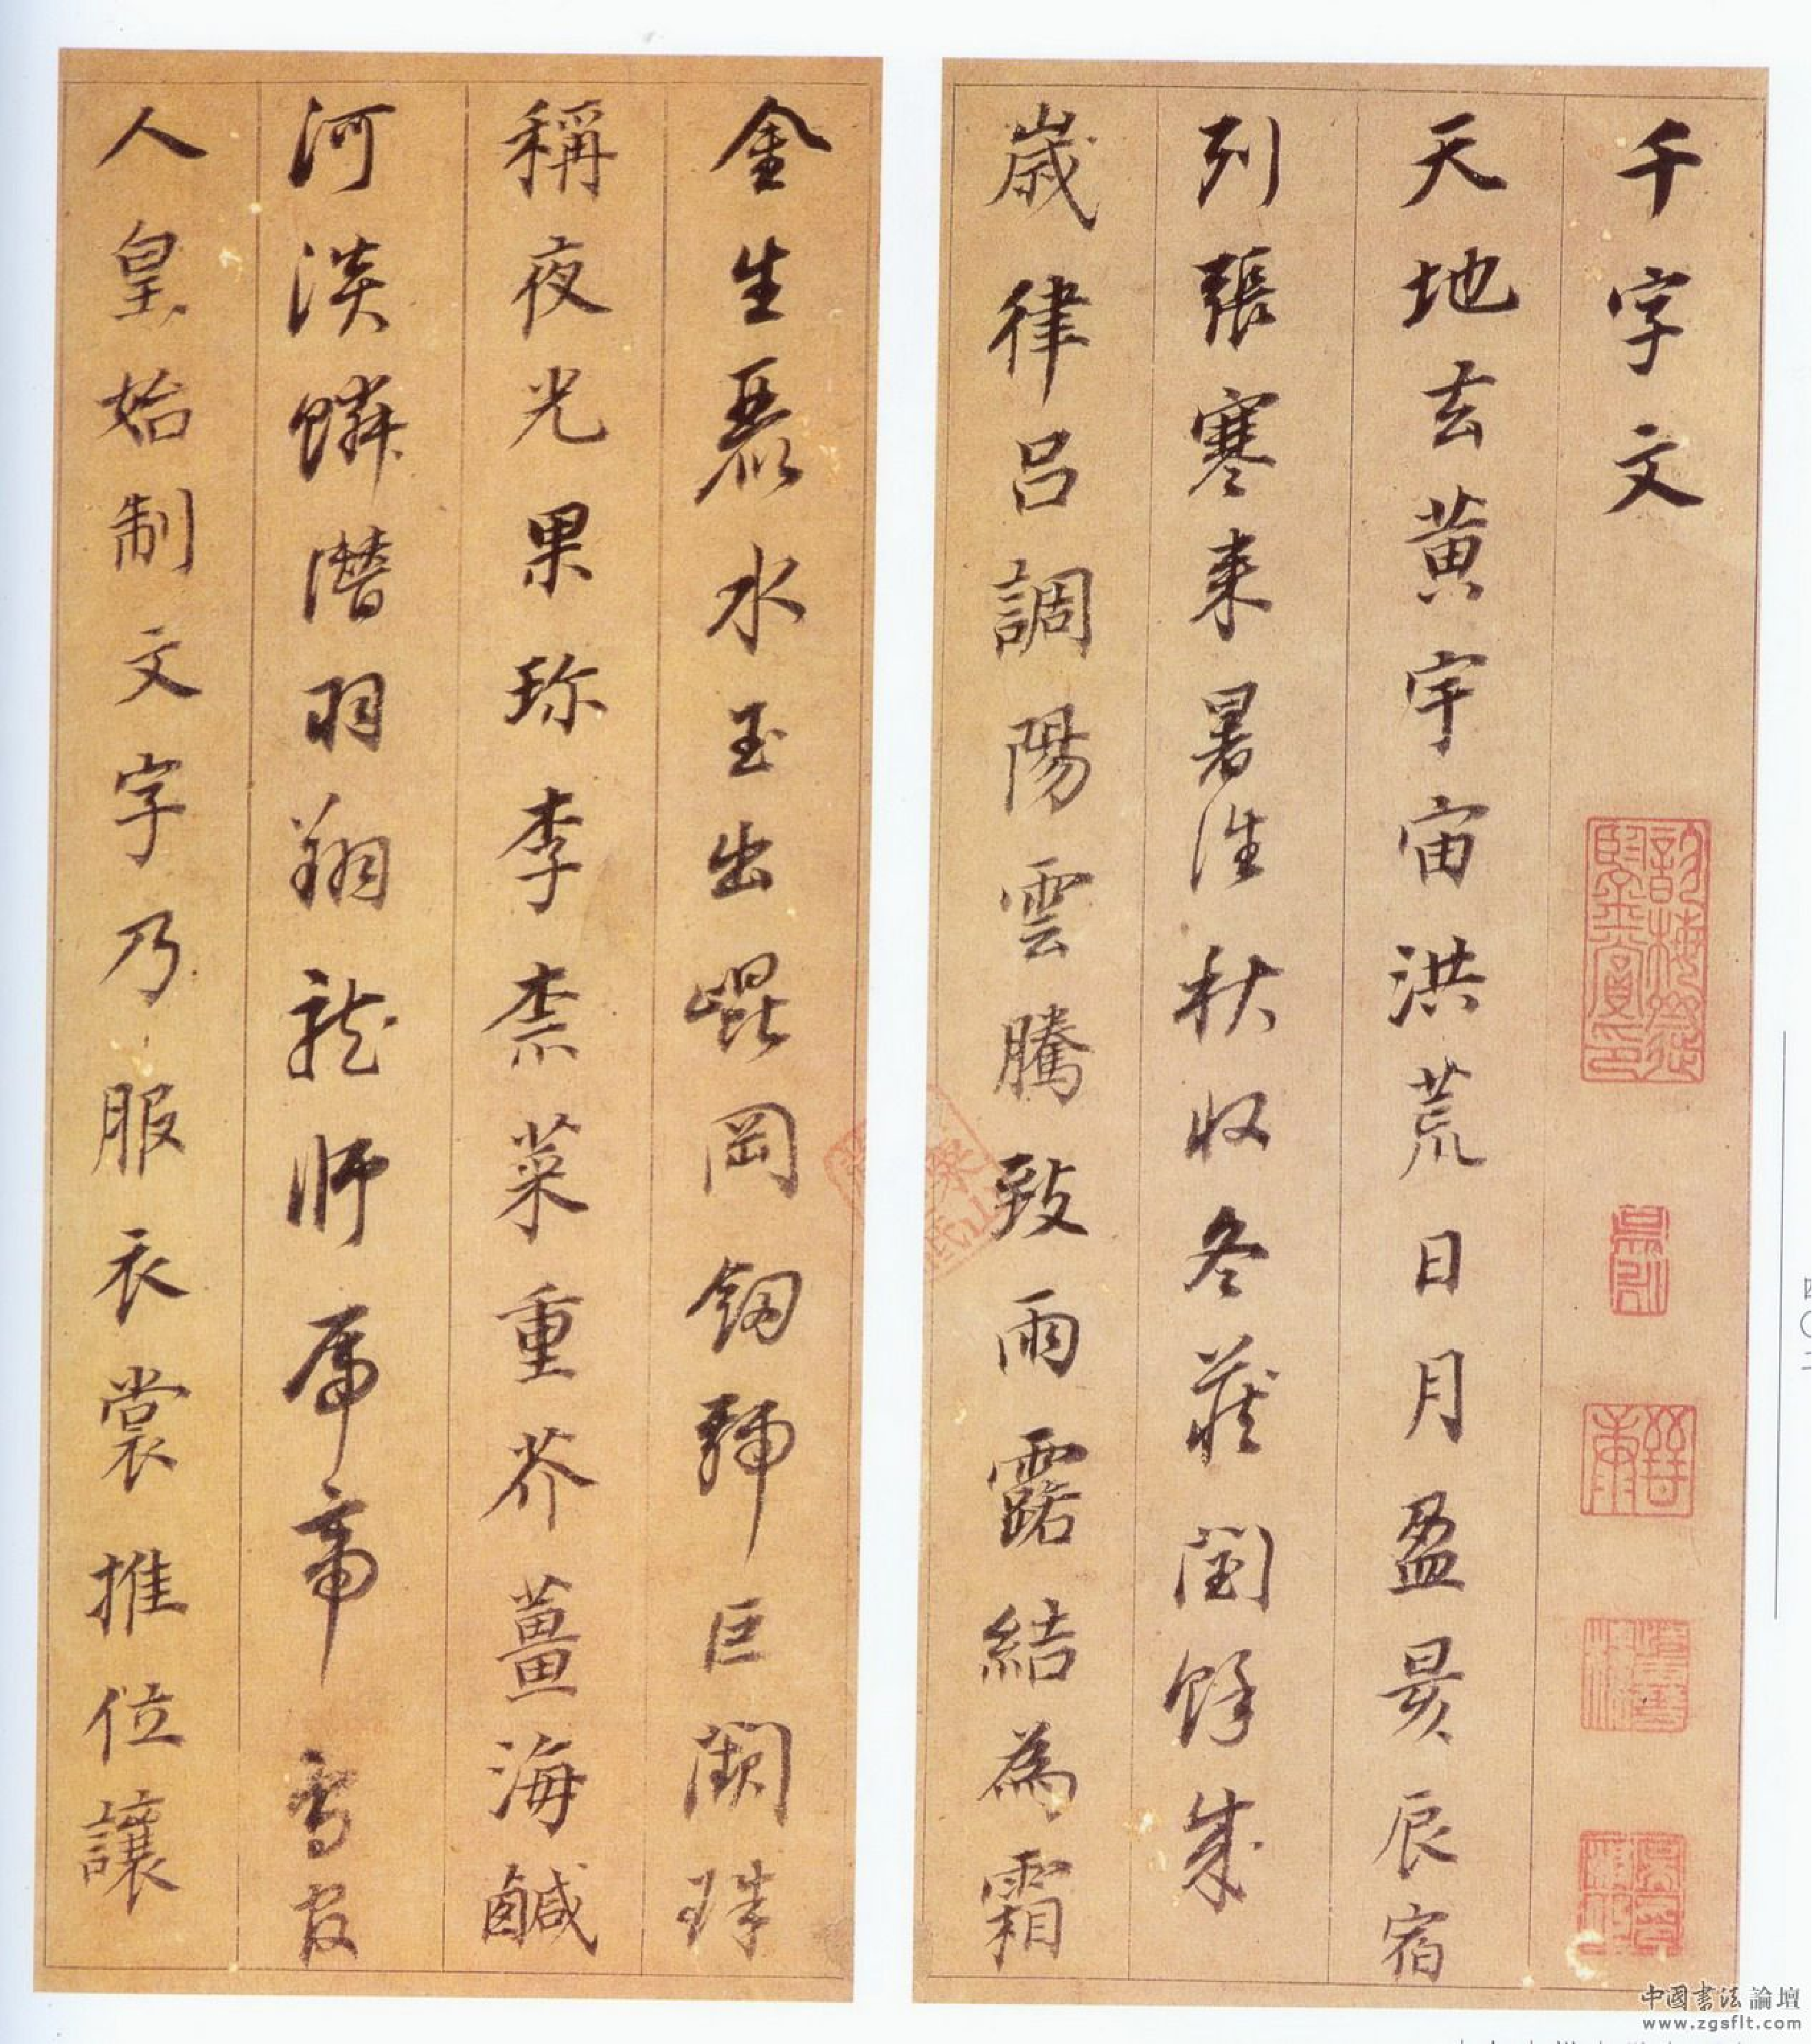 千字文
天地玄黃宇宙洪荒日月盈昃辰宿
列張寒來暑往秋收冬藏閏餘成
歲律呂調陽雲騰致雨露結為霜
金生麗水玉出崐岡劒號巨闕珠
稱夜光果珍李柰菜重芥薑海鹹
河淡鱗潛羽翔龍師帝鳥官
人皇始制文字乃服衣裳推位讓
中國書法論壇
www.zgsflt.com